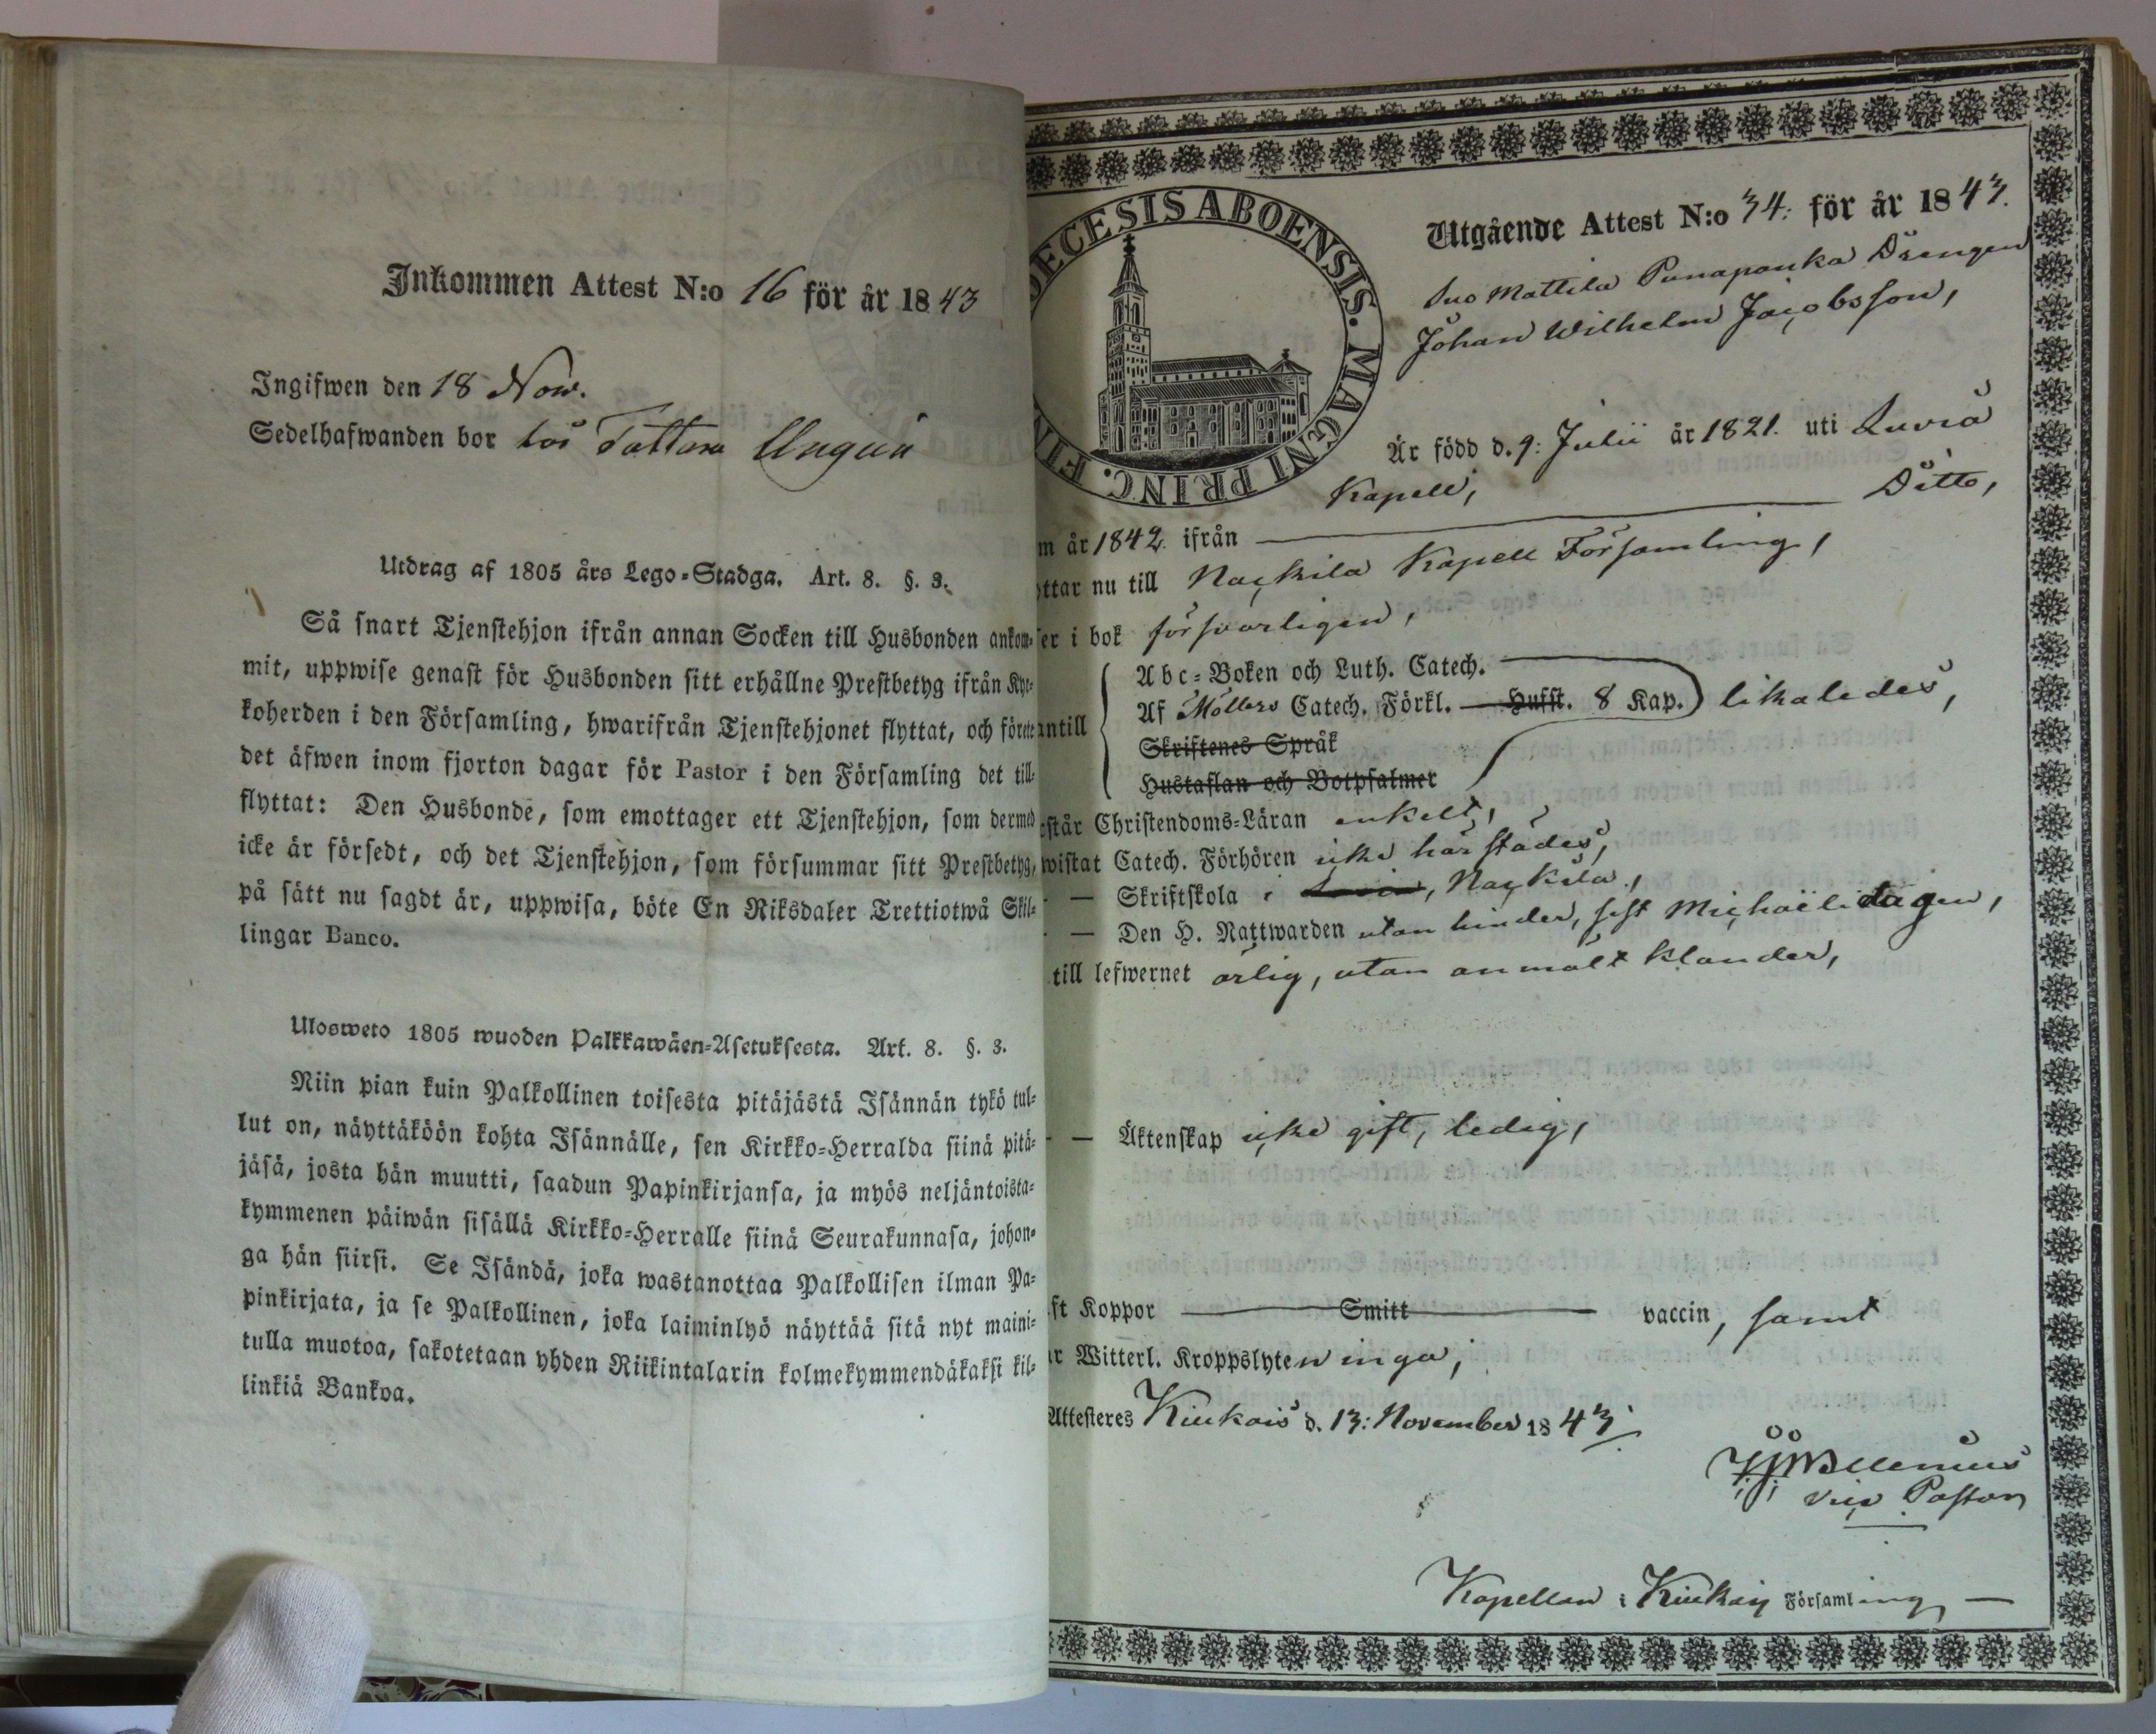 Inkommen Attest N:o 16 för år 1843
Ingifwen den 18 Now.
Sedelhafwanden bor hos Tattara
Utdrag af 1805 års Lego-Stadga. Art. 8. §. 3.
Så snart Tjenstehjon ifrån annan Socken till Husbonden ankom-
mit, uppwise genast för Husbonden sitt erhållne Prestbetyg ifrån Kyr-
koherden i den Församling, hwarifrån Tjenstehjonet flyttat, och förete
det äfwen inom fjorton dagar för Pastor i den Församling det till-
flyttat: Den Husbonde, som emottager ett Tjenstehjon, som dermed
icke är försedt, och det Tjenstehjon, som försummar sitt Prestbetyg,
på sätt nu sagdt är, uppwisa, böte En Riksdaler Trettiotwå Skil-
lingar Banco.
Ulosweto 1805 wuoden Palkkawäen-Asetuksesta. Art. 8. §. 3.
Niin pian kuin Palkollinen toisesta pitäjästä Isännän tykö tul-
lut on, näyttäköön kohta Isännälle, sen Kirkko-Herralda siinä pitä-
jäsä, josta hän muutti, saadun Papinkirjansa, ja myös neljäntoista-
kymmenen päiwän sisällä Kirkko-Herralle siinä Seurakunnasa, johon-
ga hän siirsi. Se Isändä, joka wastanottaa Palkollisen ilman Pa-
pinkirjata, ja se Palkollinen, joka laiminlyö näyttää sitä nyt maini-
tulla muotoa, sakotetaan yhden Riikintalarin kolmekymmendäkaksi kil-
linkiä Bankoa.
DECESIS ABOENSIS. MAGNI PRINC. FIN
Utgående Attest N:o 34: för år 1843.
Suo Mattila Punapauka Drengen
Johan Wilhelm Jacobsson,
Är född d. 9: Julii år 1821. uti Luvia
Kapell,
m år 1842. ifrån Ditto,
ttar nu till Nackila Kapell Församling,
er i bok försvarligen,
Abc-Boken och Luth. Catech.
Af Möllers Catech. Förkl. Husst. 8 Kap. likaledes,
antill
Skriftenes Språk
Hustaflan och Botpsalmer
står Christendoms-Läran enkelt,
wistat Catech. Förhören icke härstädes,
— Skriftskola i Luvia, Nackila,
— Den H. Nattwarden utan hinder, sist Michaëlidagen,
till lefwernet ärlig, utan anmält klander,
— Äktenskap icke gift, ledig,
ft Koppor Smitt vaccin, samt
r Witterl. Kroppslyten inga,
Attesteres Kiukais d. 13: November 1843
Vice Pastor
Kapellan i Kiukais Församling